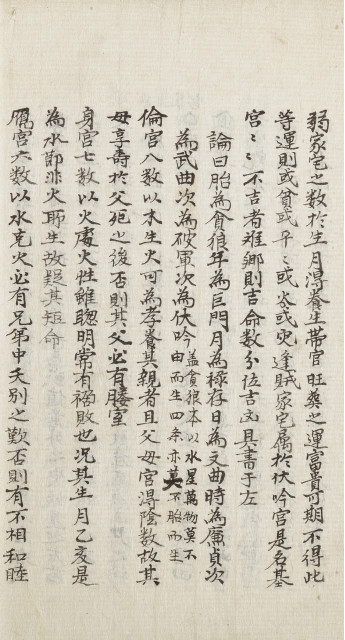 弱家宅之數於生月得養生帶官旺葵之運富貴可期不得此
等運則或貧或平〻或災或兇逢賊家宅屬於伏吟宮是名基
宮〻不吉者難鄉則吉命數分位吉凶具書于左
論曰胎為貪狼年為巨門月為祿存日為文曲時為廉貞次
為武曲次為破軍次為伏吟盖貪狼本以水星萬物莫不
由而生四条亦莫不胎而生
倫宮八數以木生火可為孝養其親者且父母宮得陰數故其
母享壽於父死之後否則其父必有賸室
身宮七數以火處火性雖聰明常有禍敗也況其生月乙亥是
為水鄉非火耶生故疑其短命
鴈宮六數以水克火必有兄弟中夭別之歎否則有不相和睦